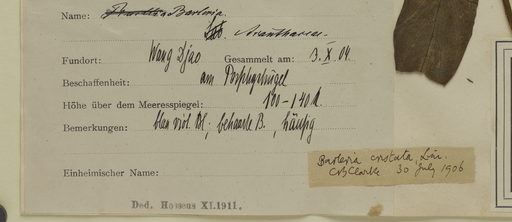 Name: Barleria
Acanthaceae
Fundort: Wang Djao Gesammelt am: 3. X 04
Beschaffenheit: am Porphyrhügel
Höhe über dem Meeresspiegel: 100-140 M.
Bemerkungen: blau viol. Bl, behaarte B., häufig
Barleria cristata, Lin.
CBClarke 30 July 1906
Einheimischer Name:
Ded. Hosseus XI.1911.